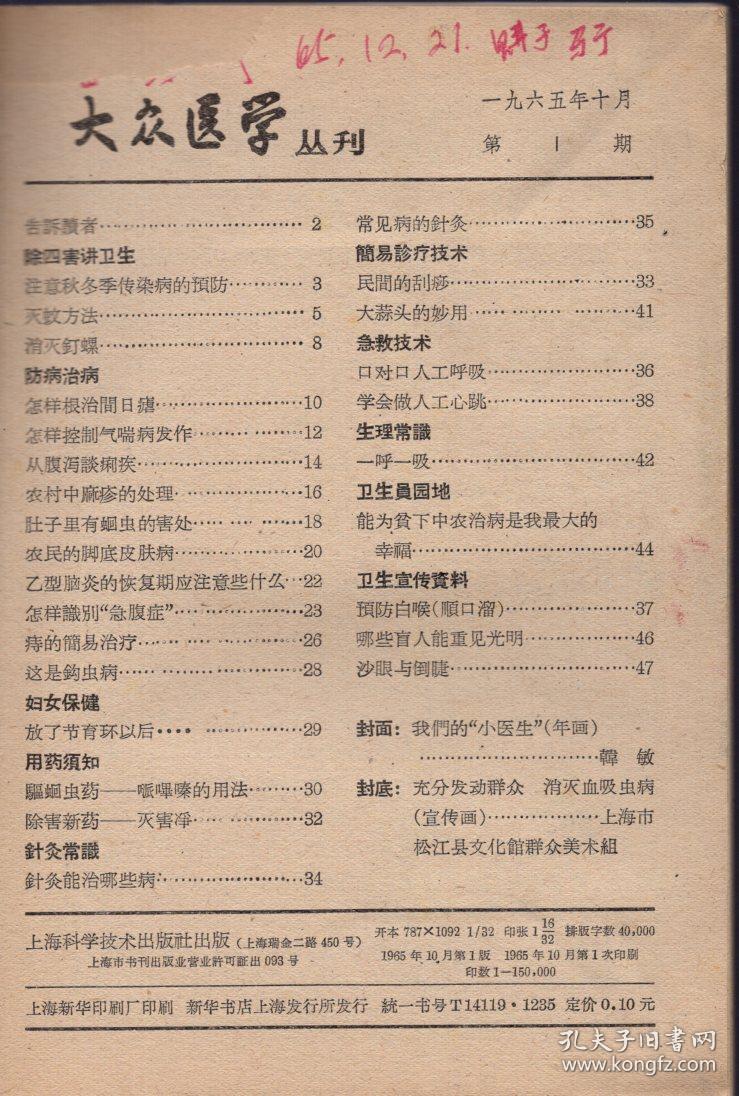 65.12.21.
大众医学 丛刊
一九六五年十月
第 1 期
告訴讀者……2
除四害讲卫生
注意秋冬季传染病的預防……3
灭蚊方法……5
消灭釘螺……8
防病治病
怎样根治間日瘧……10
怎样控制气喘病发作……12
从腹泻談痢疾……14
农村中麻疹的处理……16
肚子里有蛔虫的害处……18
农民的脚底皮肤病……20
乙型脑炎的恢复期应注意些什么…22
怎样識別“急腹症”……23
痔的簡易治疗……26
这是鈎虫病……28
妇女保健
放了节育环以后……29
用药須知
驅蛔虫药——哌嗶嗪的用法……30
除害新药——灭害净……32
針灸常識
針灸能治哪些病……34
常见病的針灸……35
簡易診疗技术
民間的刮痧……33
大蒜头的妙用……41
急救技术
口对口人工呼吸……36
学会做人工心跳……38
生理常識
一呼一吸……42
卫生員园地
能为贫下中农治病是我最大的
幸福……44
卫生宣传資料
預防白喉(順口溜)……37
哪些盲人能重见光明……46
沙眼与倒睫……47
封面：我們的“小医生”(年画)
……韓 敏
封底：充分发动群众 消灭血吸虫病
(宣传画)……上海市
松江县文化館群众美术組
上海科学技术出版社出版 (上海瑞金二路 450 号)
上海市书刊出版业营业許可証出 093 号
开本 787×1092 1/32 印张 1 16/32 排版字数 40,000
1965 年 10 月第 1 版 1965 年 10 月第 1 次印刷
印数 1—150,000
上海新华印刷厂印刷 新华书店上海发行所发行 統一书号 T14119·1235 定价 0.10 元
孔夫子旧書网
www.kongfz.com